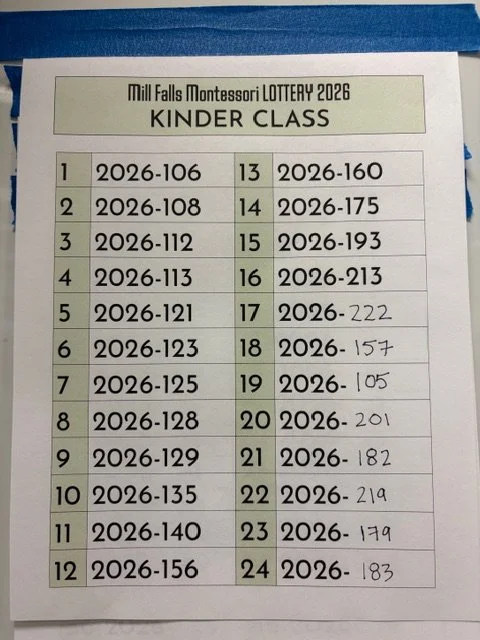 Mill Falls Montessori LOTTERY 2026
KINDER CLASS
1 2026-106 13 2026-160
2 2026-108 14 2026-175
3 2026-112 15 2026-193
4 2026-113 16 2026-213
5 2026-121 17 2026-222
6 2026-123 18 2026-157
7 2026-125 19 2026-105
8 2026-128 20 2026-201
9 2026-129 21 2026-182
10 2026-135 22 2026-219
11 2026-140 23 2026-179
12 2026-156 24 2026-183